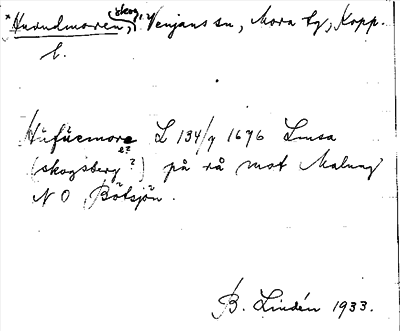 *Huvudmoren, skog, Venjans sn, Mora tg, Kopp.
l.
Hufuemore L 134/9 1696 Linsa
e?
(skogsberg?) på rå mot Malung
NO Båtsjön.
B. Lindén 1933.